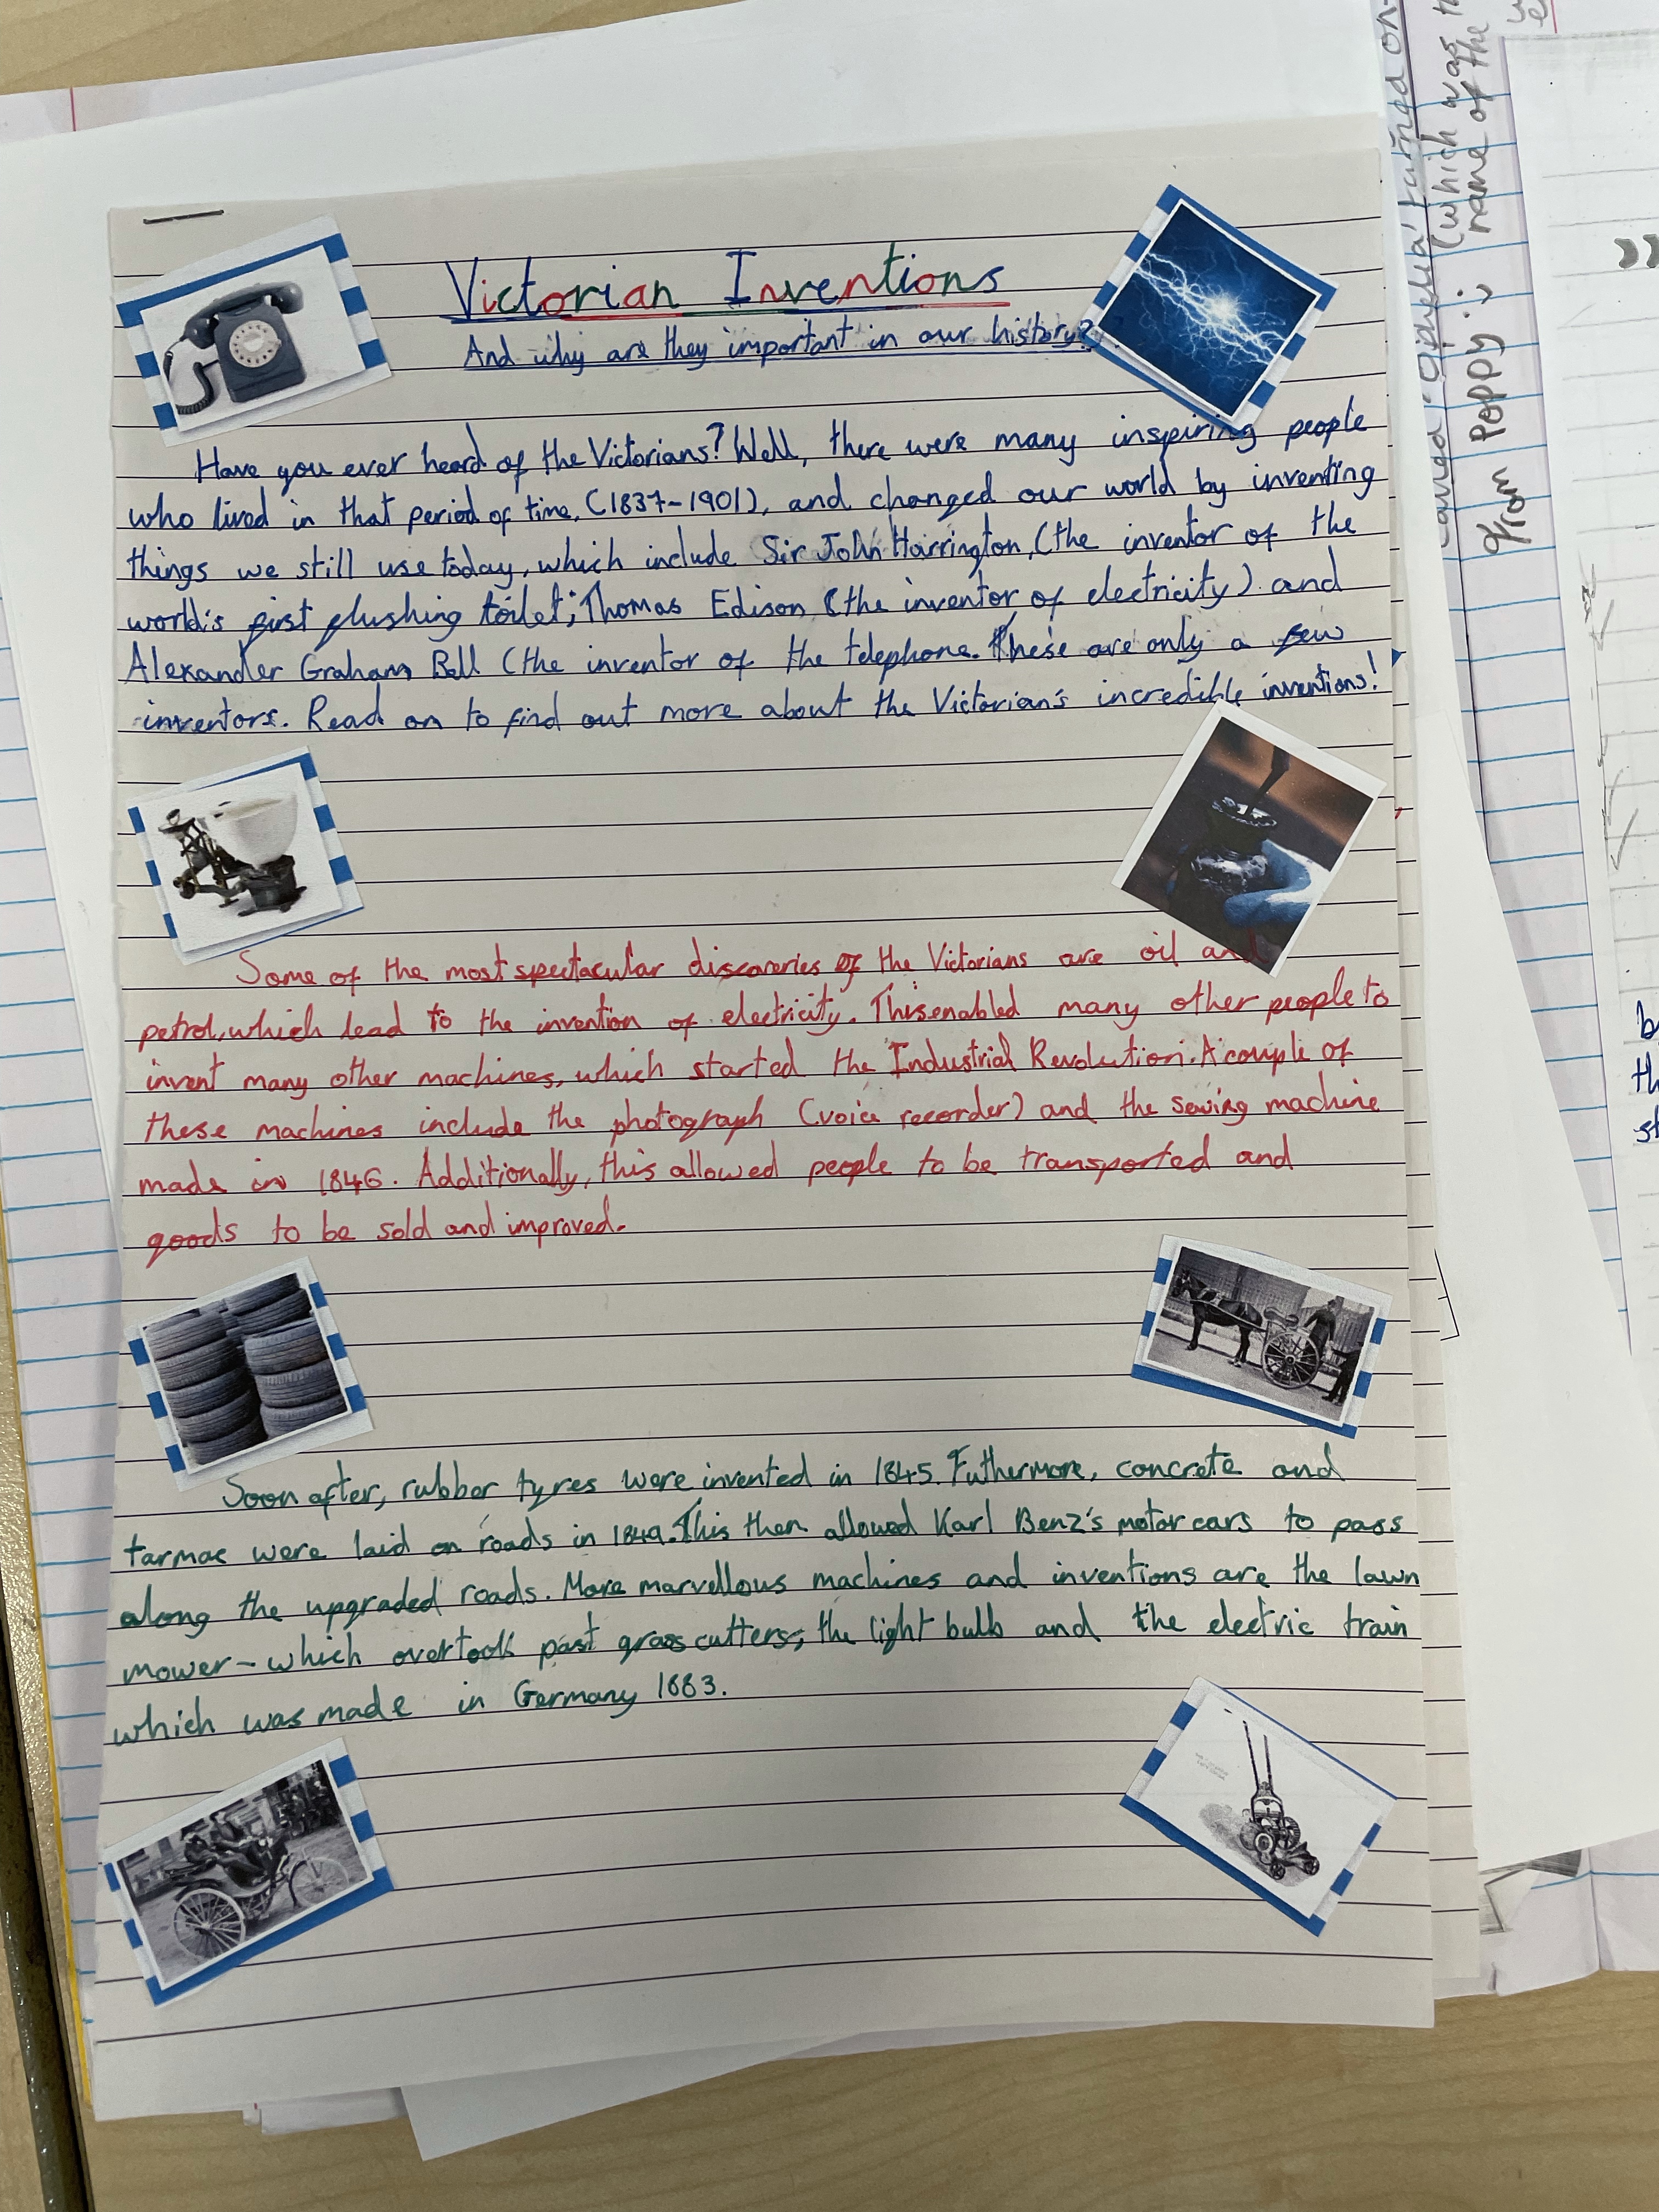 Victorian Inventions
And why are they important in our history?
Have you ever heard of the Victorians? Well, there were many inspiring people
who lived in that period of time, (1837-1901), and changed our world by inventing
things we still use today, which include Sir John Harrington, (the inventor of the
world's first flushing toilet; Thomas Edison (the inventor of electricity) and
Alexander Graham Bell (the inventor of the telephone. These are only a few
inventors. Read on to find out more about the Victorian's incredible inventions!
Some of the most spectacular discoveries of the Victorians are oil and
petrol, which lead to the invention of electricity. This enabled many other people to
invent many other machines, which started the Industrial Revolution. A couple of
these machines include the photograph (voice recorder) and the sewing machine
made in 1846. Additionally, this allowed people to be transported and
goods to be sold and improved.
Soon after, rubber tyres were invented in 1845. Futhermore, concrete and
tarmac were laid on roads in 1849. This then allowed Karl Benz's motor cars to pass
along the upgraded roads. More marvellous machines and inventions are the lawn
mower - which overtook past grass cutters; the light bulb and the electric train
which was made in Germany 1883.
turned on
(which was
name of the
from Poppy :)